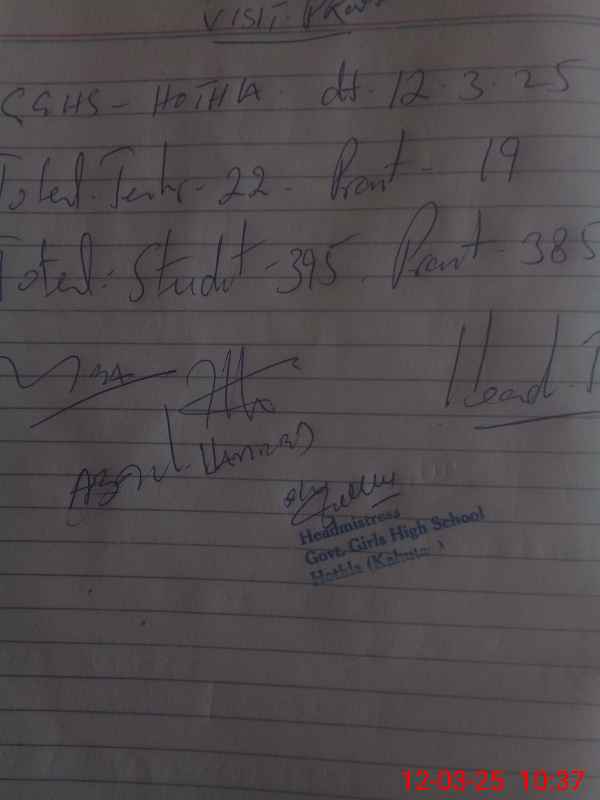 VISIT
GGHS - HOTHLA dt. 12.3.25
Total. - 22 - Prant - 19
Total: Studt - 395. Prant - 385
Head. T
Abdul Hameed
Headmistress
Govt. Girls High School
Hothla (
12-03-25 10:37